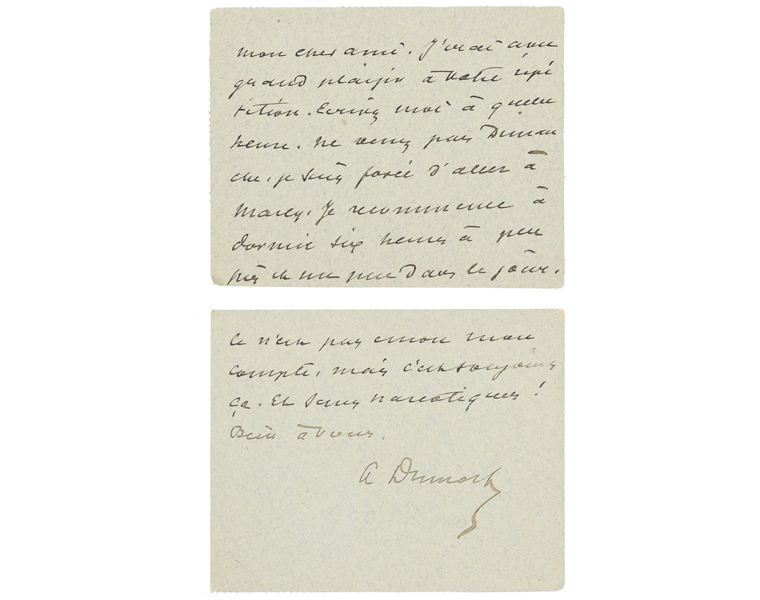 mon cher ami. J'irai avec
grand plaisir à votre répé
tition. Ecrivez moi à quelle
heure. Ne venez pas Diman
che, je suis forcé d'aller à
Marly. Je recommence à
dormir six heures à peu
près et un peu dans le jour.
Ce n'est pas encore mon
compte, mais c'est toujours
ça. Et sans narcotiques!
Bien à vous.
A Dumas